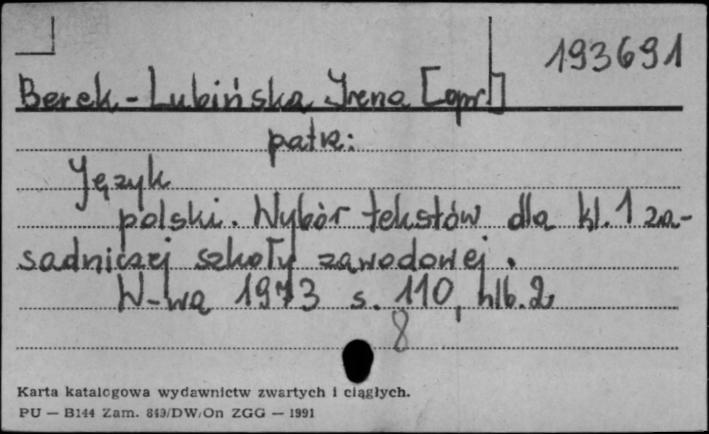 193691
Berek-Lubińska Irena [opr.]
patrz:
Język
polski. Wybór tekstów dla kl. 1 za-
sadniczej szkoły zawodowej.
W-wa 1973 s. 110, nlb. 2
8
Karta katalogowa wydawnictw zwartych i ciągłych.
PU — B144 Zam. 849/DW/On ZGG — 1991